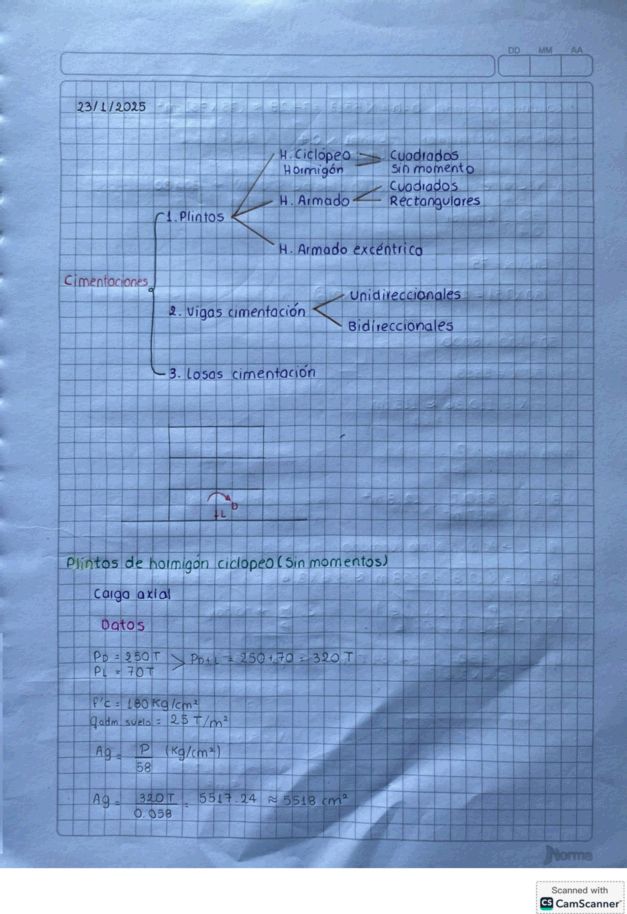 DD MM AA
23/1/2025
H. Ciclópeo
Hormigón
Cuadrados
Sin momento
H. Armado
Cuadrados
Rectangulares
1. Plintos
H. Armado excéntrico
Cimentaciones
Unidireccionales
2. Vigas cimentación
Bidireccionales
3. Losas cimentación
D
L
Plintos de hormigón ciclopeo (Sin momentos)
Carga axial
Datos
PD = 250T
PL = 70T
PD+L = 250+70 = 320 T
f'c = 180 Kg/cm²
qadm suelo = 25 T/m²
Ag = P/58 (Kg/cm²)
Ag = 320T/0.058 = 5517.24 ≈ 5518 cm²
Norma
Scanned with
CS CamScanner